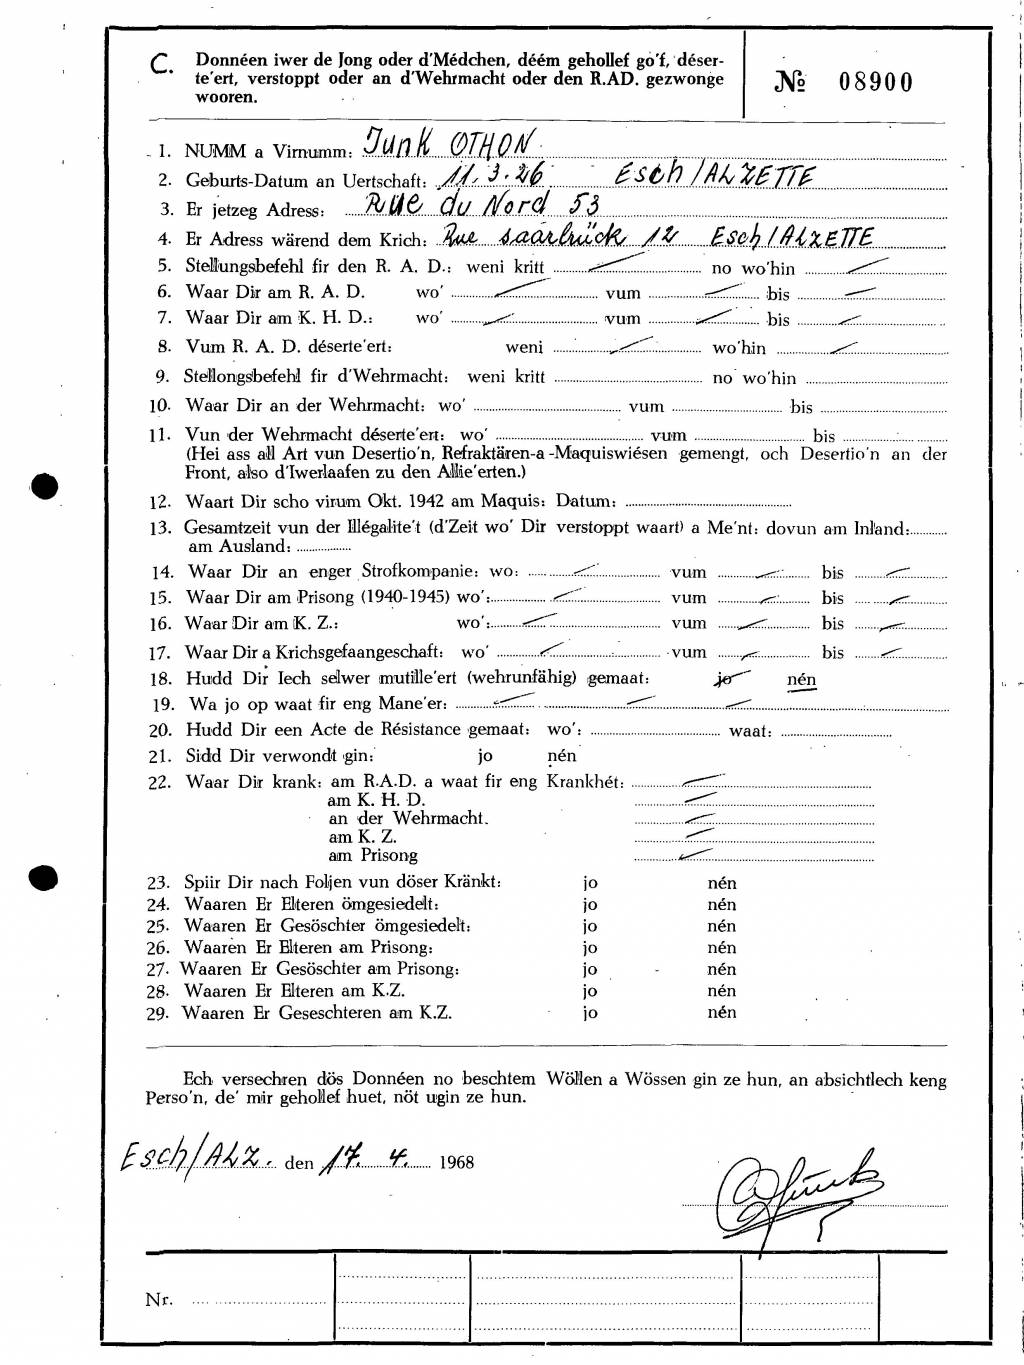 C. Donnéen iwer de Jong oder d'Médchen, déém gehollef go'f, déser-
te'ert, verstoppt oder an d'Wehrmacht oder den R.AD. gezwonge
wooren.
№ 08900
1. NUMM a Virnumm: Junk OTHON
2. Geburts-Datum an Uertschaft: 11.3.26 Esch/ALZETTE
3. Er jetzeg Adress: Rue du Nord 53
4. Er Adress wärend dem Krich: Rue saarbrück 12 Esch/ALZETTE
5. Stellungsbefehl fir den R. A. D.: weni kritt no wo'hin
6. Waar Dir am R. A. D. wo' vum bis
7. Waar Dir am K. H. D.: wo' vum bis
8. Vum R. A. D. déserte'ert: weni wo'hin
9. Stellongsbefehl fir d'Wehrmacht: weni kritt no wo'hin
10. Waar Dir an der Wehrmacht: wo' vum bis
11. Vun der Wehrmacht déserte'ert: wo' vum bis
(Hei ass all Art vun Desertio'n, Refraktären-a-Maquiswiésen gemengt, och Desertio'n an der
Front, also d'Iwerlaafen zu den Allie'erten.)
12. Waart Dir scho virum Okt. 1942 am Maquis: Datum:
13. Gesamtzeit vun der Illégalite't (d'Zeit wo' Dir verstoppt waart) a Me'nt: dovun am Inland:
am Ausland:
14. Waar Dir an enger Strofkompanie: wo: vum bis
15. Waar Dir am Prisong (1940-1945) wo': vum bis
16. Waar Dir am K. Z.: wo': vum bis
17. Waar Dir a Krichsgefaangeschaft: wo' vum bis
18. Hudd Dir Iech selwer mutille'ert (wehrunfähig) gemaat: jo nén
19. Wa jo op waat fir eng Mane'er:
20. Hudd Dir een Acte de Résistance gemaat: wo': waat:
21. Sidd Dir verwondt gin: jo nén
22. Waar Dir krank: am R.A.D. a waat fir eng Krankhét:
am K. H. D.
an der Wehrmacht.
am K. Z.
am Prisong
23. Spiir Dir nach Foljen vun döser Kränkt: jo nén
24. Waaren Er Elteren ömgesiedelt: jo nén
25. Waaren Er Gesöschter ömgesiedelt: jo nén
26. Waaren Er Elteren am Prisong: jo nén
27. Waaren Er Gesöschter am Prisong: jo nén
28. Waaren Er Elteren am K.Z. jo nén
29. Waaren Er Geseschteren am K.Z. jo nén
Ech versechren dös Donnéen no beschtem Wöllen a Wössen gin ze hun, an absichtlech keng
Perso'n, de' mir gehollef huet, nöt ugin ze hun.
Esch/ALZ. den 17. 4. 1968
Junk
Nr.